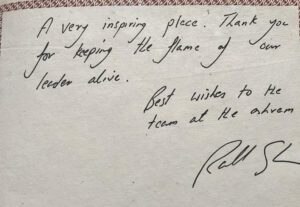 A very inspiring place. Thank you
for keeping the flame of our
leader alive.
Best wishes to the
team at the ashram